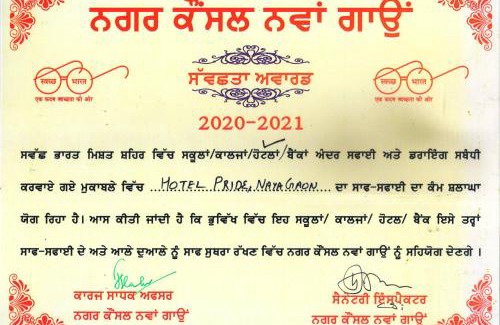 ਨਗਰ ਕੌਂਸਲ ਨਵਾਂ ਗਾਉਂ
स्वच्छ भारत
एक कदम स्वच्छता की ओर
ਸੱਵਛਤਾ ਅਵਾਰਡ
स्वच्छ भारत
एक कदम स्वच्छता की ओर
2020-2021
ਸਵੱਛ ਭਾਰਤ ਮਿਸ਼ਤ ਸ਼ਹਿਰ ਵਿੱਚ ਸਕੂਲਾਂ/ਕਾਲਜਾਂ/ਹੋਟਲਾਂ/ਬੈਂਕਾਂ ਅੰਦਰ ਸਫਾਈ ਅਤੇ ਡਰਾਇੰਗ ਸਬੰਧੀ
ਕਰਵਾਏ ਗਏ ਮੁਕਾਬਲੇ ਵਿੱਚ ....HOTEL PRIDE, NAYAGAON.... ਦਾ ਸਾਫ-ਸਫਾਈ ਦਾ ਕੰਮ ਸ਼ਲਾਘਾ
ਯੋਗ ਰਿਹਾ ਹੈ। ਆਸ ਕੀਤੀ ਜਾਂਦੀ ਹੈ ਕਿ ਭੁਵਿੱਖ ਵਿੱਚ ਇਹ ਸਕੂਲਾਂ/ ਕਾਲਜਾਂ/ ਹੋਟਲ/ ਬੈਂਕ ਇਸੇ ਤਰ੍ਹਾਂ
ਸਾਫ-ਸਫਾਈ ਦੇ ਅਤੇ ਆਲੇ ਦੁਆਲੇ ਨੂੰ ਸਾਫ ਸੁਥਰਾ ਰੱਖਣ ਵਿੱਚ ਨਗਰ ਕੌਂਸਲ ਨਵਾਂ ਗਾਉਂ ਨੂੰ ਸਹਿਯੋਗ ਦੇਣਗੇ।
ਕਾਰਜ ਸਾਧਕ ਅਫਸਰ
ਨਗਰ ਕੌਂਸਲ ਨਵਾਂ ਗਾਉਂ
ਸੈਨੇਟਰੀ ਇੰਸਪੈਕਟਰ
ਨਗਰ ਕੌਂਸਲ ਨਵਾਂ ਗਾਉਂ